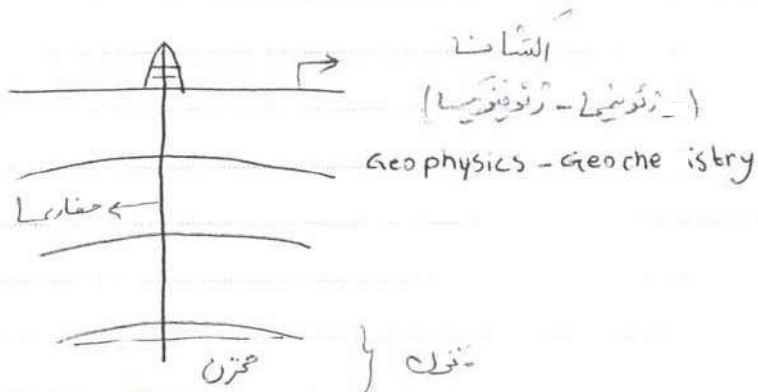 اکتشاف
(ژئوشیمی - ژئوفیزیک)
Geophysics - Geoche istry
حفاری
مخزن